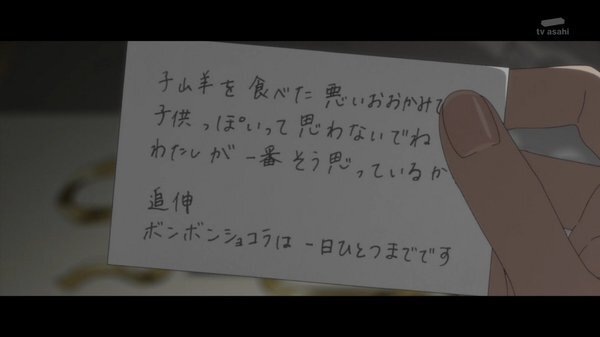 tv asahi
子山羊を食べた悪いおおかみで
子供っぽいって思わないでね
わたしが一番そう思っているか
追伸
ボンボンショコラは一日ひとつまでです